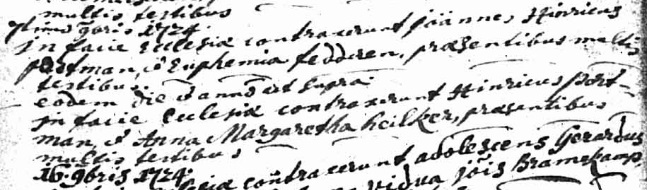 multis testibus
9bris 1724
in facie Ecclesiæ contraxerunt Joannes Hinricus
portman, & Euphemia fedderen, præsentibus multis
testibus.
eodem die & anno ut supra
in facie Ecclesiæ contraxerunt Hinricus port-
man, & Anna Margaretha heilker, præsentibus
multis testibus
16. 9bris 1724
contraxerunt adolescens Gerardus
vidua jois Bramstkamp